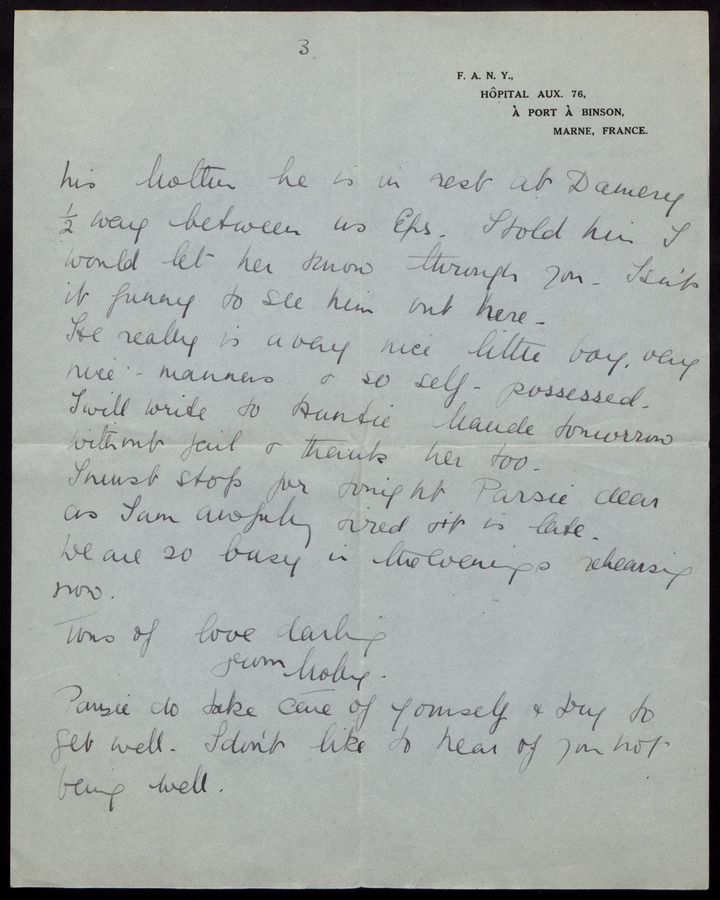 3
F. A. N. Y.,
HÔPITAL AUX. 76,
À PORT À BINSON,
MARNE, FRANCE.
his Mother he is in rest at Damery
½ way between us & Eps. I told him I
would let her know through you - Isn't
it funny to see him out here -
He really is a very nice little boy, very
nice - manners & so self-possessed.
I will write to Auntie Maude tomorrow
without fail & thank her too.
I must stop for tonight Parsie dear
as I am awfully tired & it is late.
We are so busy in the evenings rehearsing
now.
Tons of love darling
from Moly.
Parsie do take care of yourself & try to
get well - I don't like to hear of you not
being well.